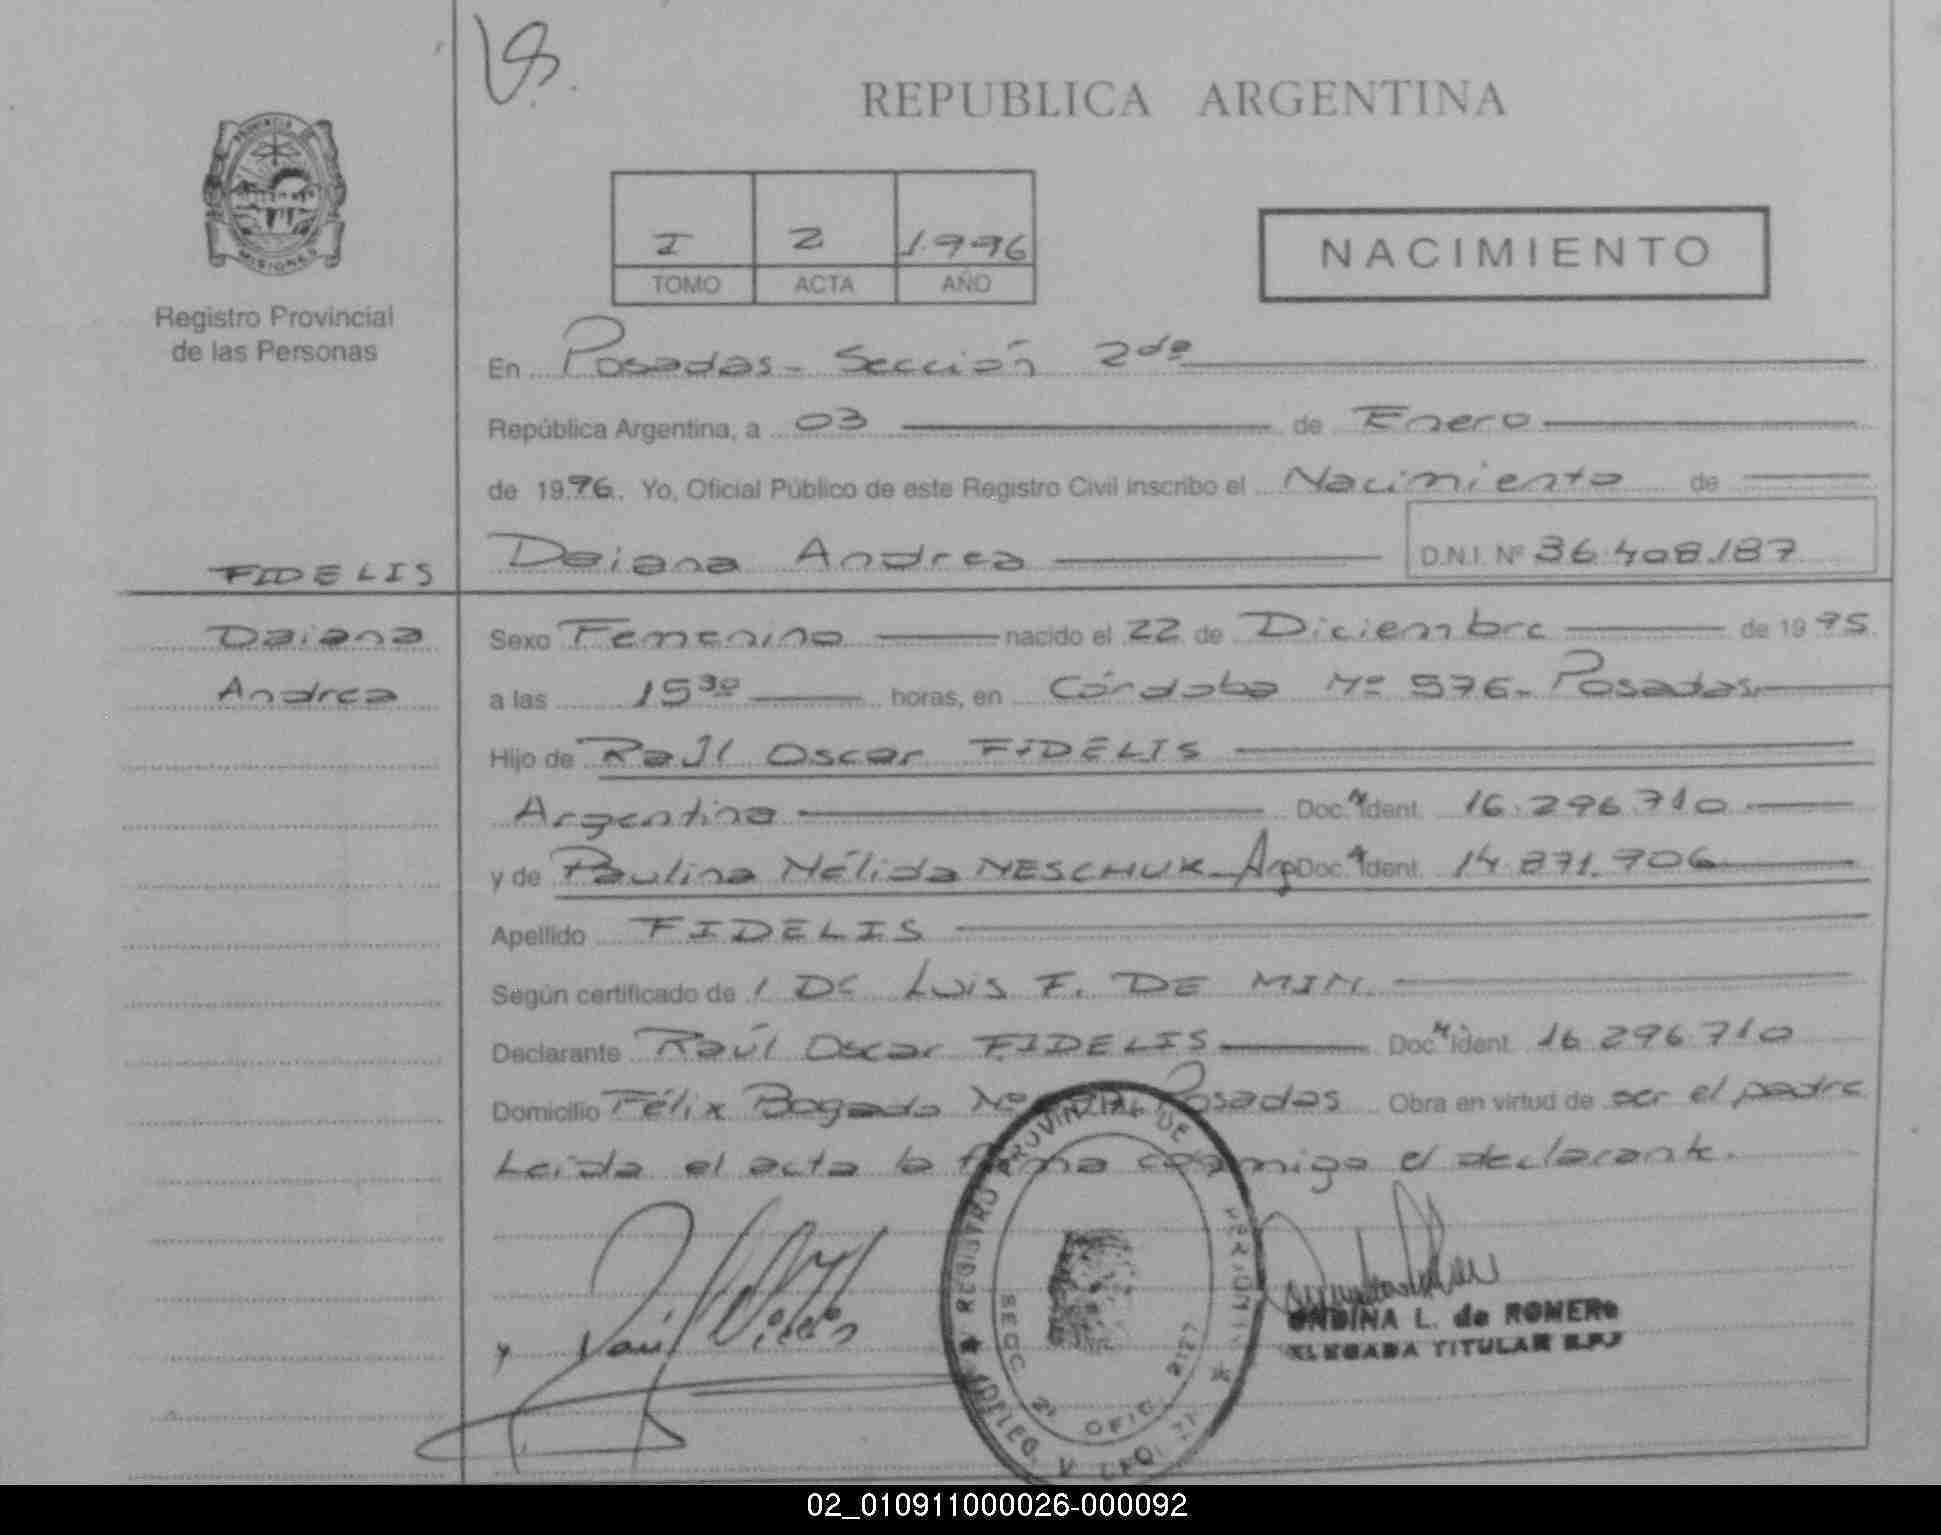 REPUBLICA ARGENTINA
PROVINCIA DE
MISIONES
Registro Provincial
de las Personas
I 2 1.996
TOMO ACTA AÑO
NACIMIENTO
En Posadas - Sección 2da
República Argentina, a 03 de Enero
de 1996. Yo, Oficial Público de este Registro Civil inscribo el Nacimiento de
FIDELIS
Daiana Andrea D.N.I. Nº 36.408.187
Daiana
Andrea
Sexo Femenino nacido el 22 de Diciembre de 1995
a las 15 30 horas, en Córdoba Nº 576 - Posadas
Hijo de Raúl Oscar FIDELIS
Argentina Doc. Ident. 16.296.710
y de Paulina Nélida NESCHUK - Arg Doc. Ident. 14.871.706
Apellido FIDELIS
Según certificado de / Dr Luis F. DE MIN.
Declarante Raúl Oscar FIDELIS Doc. Ident. 16.296.710
Domicilio Félix Bogado Nº Posadas Obra en virtud de ser el padre
Leída el acta la firma conmigo el declarante.
REGISTRO PROVINCIAL DE
SECC. 2ª OFIC.
ONDINA L. de ROMERO
DELEGADA TITULAR R.P.P
02_010911000026-000092